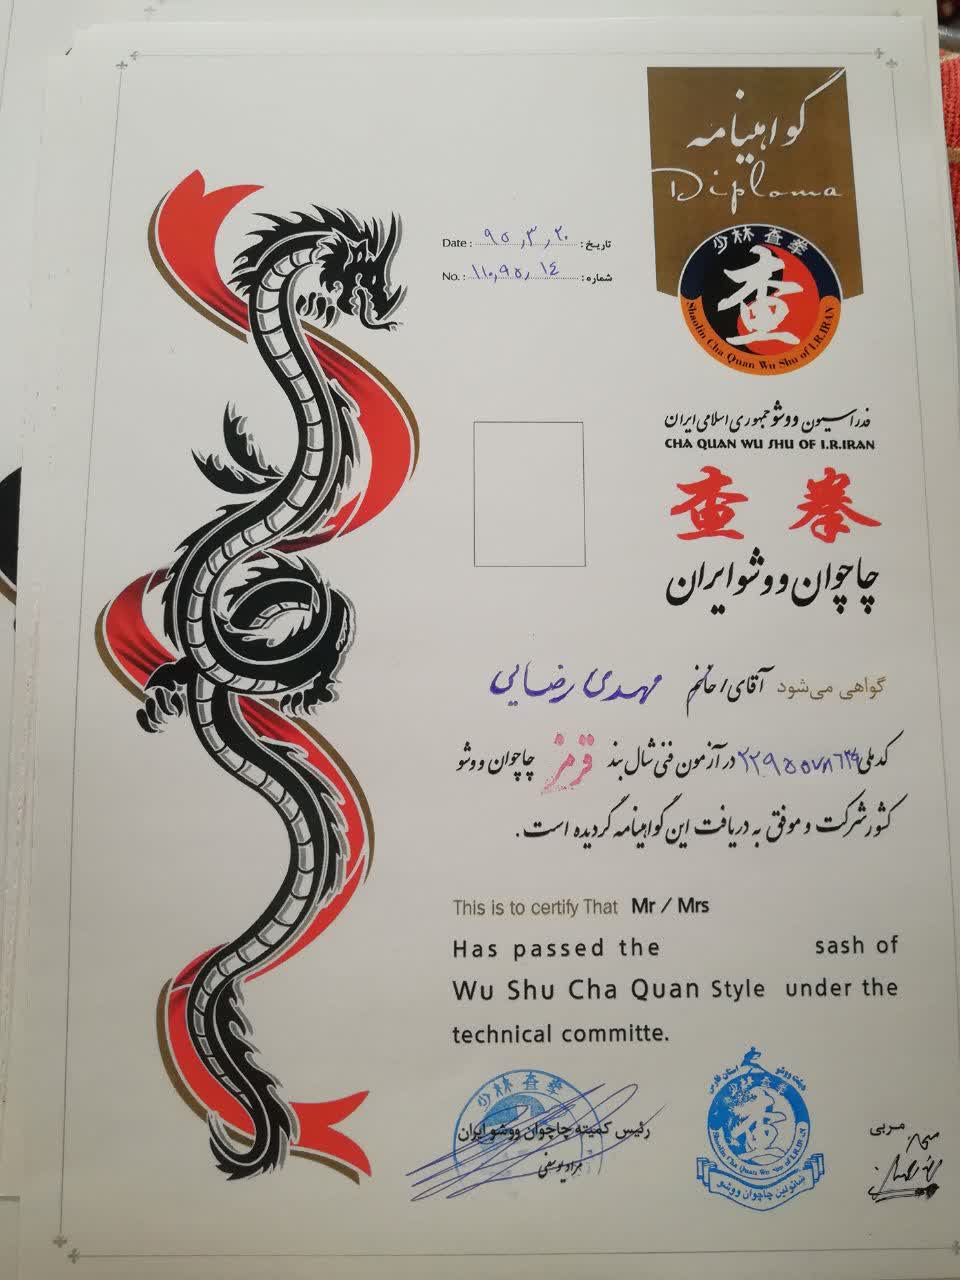 گواهینامه
Diploma
少林查拳
查
Shaolin Cha Quan Wu Shu of I.R.IRAN
تاریخ : ۹۵,۳,۲۰ Date :
شماره : ۱۱۰,۹۵,۱۴ No. :
فدراسیون ووشو جمهوری اسلامی ایران
CHA QUAN WU SHU OF I.R.IRAN
查 拳
چاچوان ووشو ایران
گواهی می‌شود آقای / خانم مهدی رضایی
کد ملی در آزمون فنی شال بند قرمز چاچوان ووشو
کشور شرکت و موفق به دریافت این گواهینامه گردیده است .
This is to certify That Mr / Mrs
Has passed the sash of
Wu Shu Cha Quan Style under the
technical committe.
少林查拳
رئیس کمیته چاچوان ووشو ایران
مراد یوسفی
هیئت ووشو استان فارس
少林查拳
Shaolin Cha Quan Wu Shu of I.R.IRAN
شائولین چاچوان ووشو
مربی